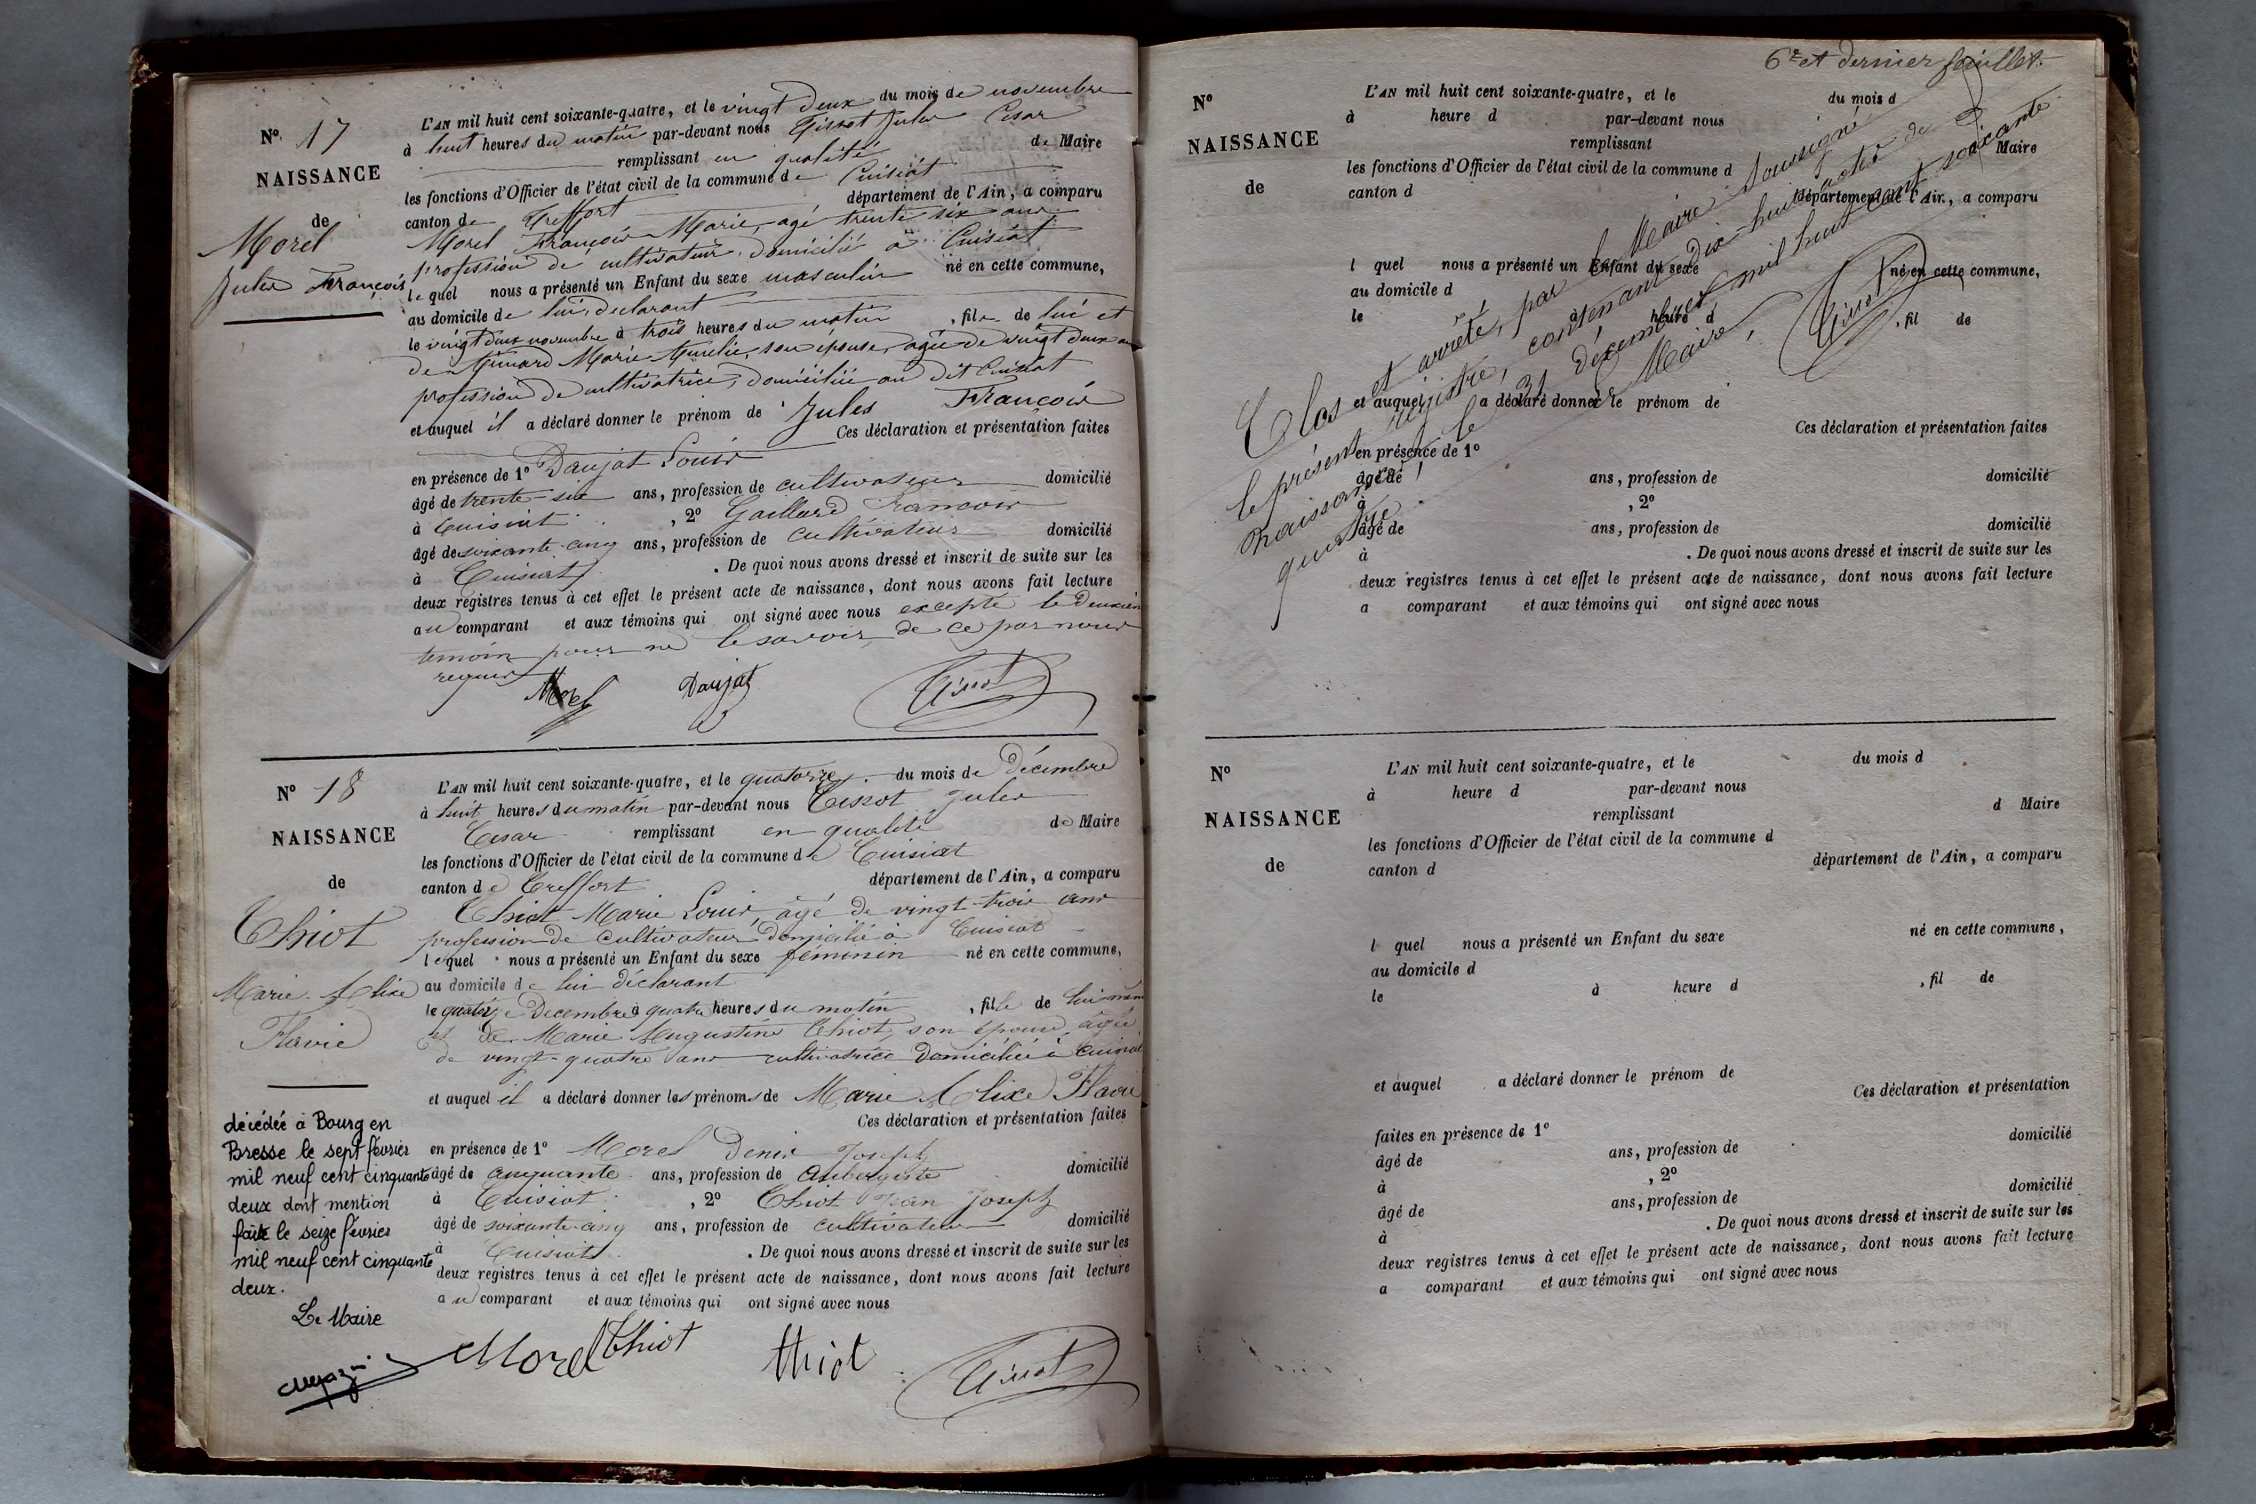 N° 17
NAISSANCE
de
Morel
Jules François
L'AN mil huit cent soixante-quatre, et le vingt deux du mois de novembre
à huit heures du matin par-devant nous Tissot Jules César
remplissant en qualité de Maire
les fonctions d'Officier de l'état civil de la commune de Cuisiat
canton de Treffort département de l'Ain, a comparu
Morel François Marie, agé trente six ans
profession de cultivateur, domicilié à Cuisiat
le quel nous a présenté un Enfant du sexe masculin né en cette commune,
au domicile de lui, déclarant
le vingt deux novembre à trois heures du matin, fils de lui et
de Marie Aurélie, son épouse, agée de vingt deux ans
profession de cultivatrice, domiciliée au dit Cuisiat
et auquel il a déclaré donner le prénom de Jules François
Ces déclaration et présentation faites
en présence de 1° Daujat Louis
âgé de trente-six ans, profession de cultivateur domicilié
à Cuisiat, 2° Gaillard François
âgé de soixante-cinq ans, profession de cultivateur domicilié
à Cuisiat. De quoi nous avons dressé et inscrit de suite sur les
deux registres tenus à cet effet le présent acte de naissance, dont nous avons fait lecture
au comparant et aux témoins qui ont signé avec nous excepté le deuxième
temoin pour ne le savoir, de ce par nous
requis
Morel Daujat Tissot
N° 18
NAISSANCE
de
Thiot
Marie Alixe
Flavie
L'AN mil huit cent soixante-quatre, et le quatorze du mois de Décembre
à huit heures du matin par-devant nous Tissot Jules
César remplissant en qualité de Maire
les fonctions d'Officier de l'état civil de la commune de Cuisiat
canton de Treffort département de l'Ain, a comparu
Thiot Marie Louis, âgé de vingt-trois ans
profession de cultivateur, domicilié à Cuisiat
lequel nous a présenté un Enfant du sexe féminin né en cette commune,
au domicile de lui déclarant
le quatorze Decembre à quatre heures du matin, fille de lui même
et de Marie Augustine Thiot, son épouse, âgée
de vingt-quatre ans cultivatrice domiciliée à Cuisiat
et auquel il a déclaré donner les prénoms de Marie Alixe Flavie
Ces déclaration et présentation faites
en présence de 1° Morel Denis Joseph
âgé de cinquante ans, profession de aubergiste domicilié
à Cuisiat, 2° Thiot Jean Joseph
âgé de soixante-cinq ans, profession de cultivateur domicilié
à Cuisiat. De quoi nous avons dressé et inscrit de suite sur les
deux registres tenus à cet effet le présent acte de naissance, dont nous avons fait lecture
au comparant et aux témoins qui ont signé avec nous
décédée à Bourg en
Bresse le sept février
mil neuf cent cinquante
deux dont mention
faite le seize février
mil neuf cent cinquante
deux.
Le Maire
Morel Thiot Thiot Tissot
6e et dernier feuillet.
N°
NAISSANCE
de
L'AN mil huit cent soixante-quatre, et le du mois d
à heure d par-devant nous
remplissant d Maire
les fonctions d'Officier de l'état civil de la commune d
canton d département de l'Ain, a comparu
l quel nous a présenté un Enfant du sexe né en cette commune,
au domicile d
le à heure d, fil de
et auquel a déclaré donner le prénom de
Ces déclaration et présentation faites
en présence de 1°
âgé de ans, profession de domicilié
à, 2°
âgé de ans, profession de domicilié
à. De quoi nous avons dressé et inscrit de suite sur les
deux registres tenus à cet effet le présent acte de naissance, dont nous avons fait lecture
a comparant et aux témoins qui ont signé avec nous
Clos et arrêté, par le Maire soussigné
le présent régistre, contenant dix-huit actes de
naissance, le 31 décembre mil huit cent soixante
quatre
Le Maire,
Tissot
N°
NAISSANCE
de
L'AN mil huit cent soixante-quatre, et le du mois d
à heure d par-devant nous
remplissant d Maire
les fonctions d'Officier de l'état civil de la commune d
canton d département de l'Ain, a comparu
l quel nous a présenté un Enfant du sexe né en cette commune,
au domicile d
le à heure d, fil de
et auquel a déclaré donner le prénom de
Ces déclaration et présentation
faites en présence de 1°
âgé de ans, profession de domicilié
à, 2°
âgé de ans, profession de domicilié
à. De quoi nous avons dressé et inscrit de suite sur les
deux registres tenus à cet effet le présent acte de naissance, dont nous avons fait lecture
a comparant et aux témoins qui ont signé avec nous